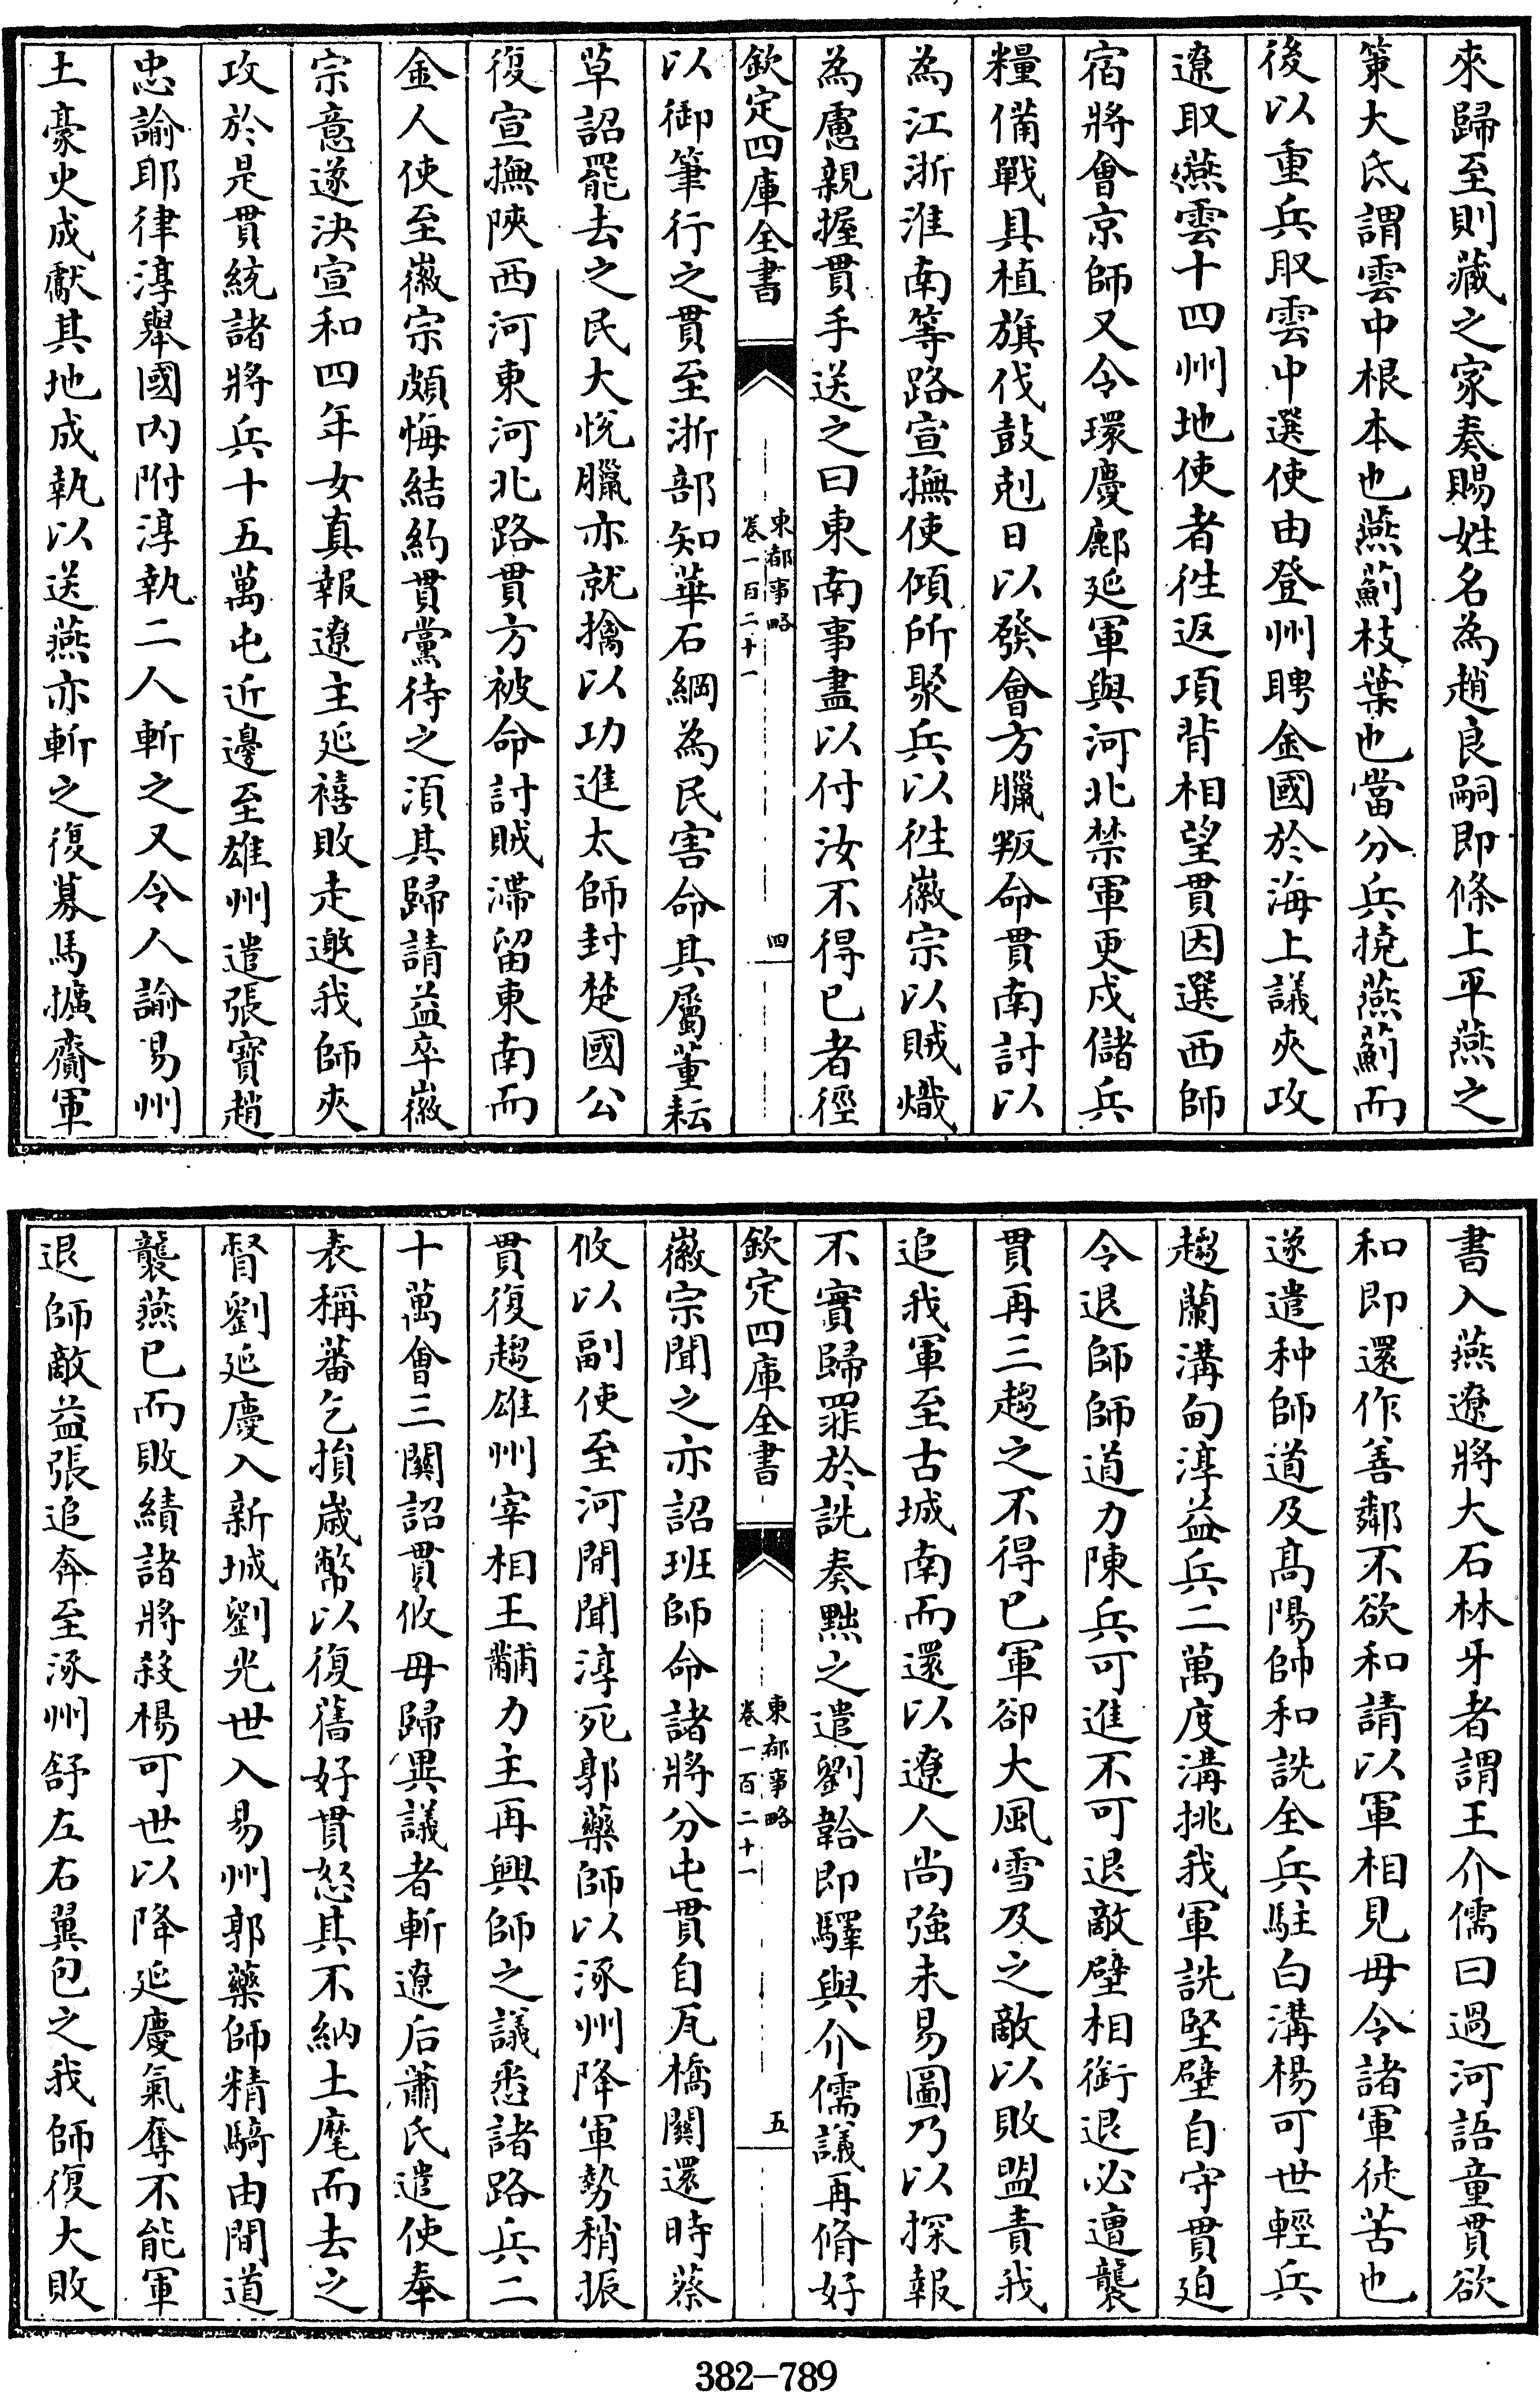 來歸至則藏之家奏賜姓名為趙良嗣即條上平燕之
策大氐謂雲中根本也燕薊枝葉也當分兵撓燕薊而
後以重兵取雲中選使由登州聘金國於海上議夾攻
遼取燕雲十四州地使者徃返項背相望貫因選西師
宿將會京師又令環慶鄜延軍與河北禁軍更戍儲兵
糧備戰具植旗伐鼓剋日以發會方臘叛命貫南討以
為江浙淮南等路宣撫使傾所聚兵以徃徽宗以賊熾
為慮親握貫手送之曰東南事盡以付汝不得已者徑
欽定四庫全書
東都事略
卷一百二十一
四
以御筆行之貫至浙部知華石綱為民害命其屬董耘
草詔罷去之民大悅臘亦就擒以功進太師封楚國公
復宣撫陝西河東河北路貫方被命討賊滯留東南而
金人使至徽宗頗悔結約貫黨待之須其歸請益卒徽
宗意遂決宣和四年女真報遼主延禧敗走邀我師夾
攻於是貫統諸將兵十五萬屯近邊至雄州遣張寶趙
忠諭耶律淳舉國内附淳執二人斬之又令人諭易州
土豪史成獻其地成執以送燕亦斬之復募馬擴齎軍
書入燕遼將大石林牙者謂王介儒曰過河語童貫欲
和即還作善鄰不欲和請以軍相見毋令諸軍徒苦也
遂遣种師道及髙陽帥和詵全兵駐白溝楊可世輕兵
趨蘭溝甸淳益兵二萬度溝挑我軍詵堅壁自守貫廹
令退師師道力陳兵可進不可退敵壁相銜退必遭襲
貫再三趨之不得已軍卻大風雪及之敵以敗盟責我
追我軍至古城南而還以遼人尚強未易圖乃以探報
不實歸罪於詵奏黜之遣劉韐即驛與介儒議再脩好
欽定四庫全書
東都事略
卷一百二十一
五
徽宗聞之亦詔班師命諸將分屯貫自瓦橋闗還時蔡
攸以副使至河間聞淳死郭藥師以涿州降軍勢稍振
貫復趨雄州宰相王黼力主再興師之議悉諸路兵二
十萬會三闗詔貫攸毋歸異議者斬遼后蕭氏遣使奉
表稱蕃乞損歲幣以復舊好貫怒其不納土麾而去之
督劉延慶入新城劉光世入易州郭藥師精騎由間道
襲燕已而敗績諸將殺楊可世以降延慶氣奪不能軍
退師敵益張追奔至涿州舒左右翼包之我師復大敗
382-789